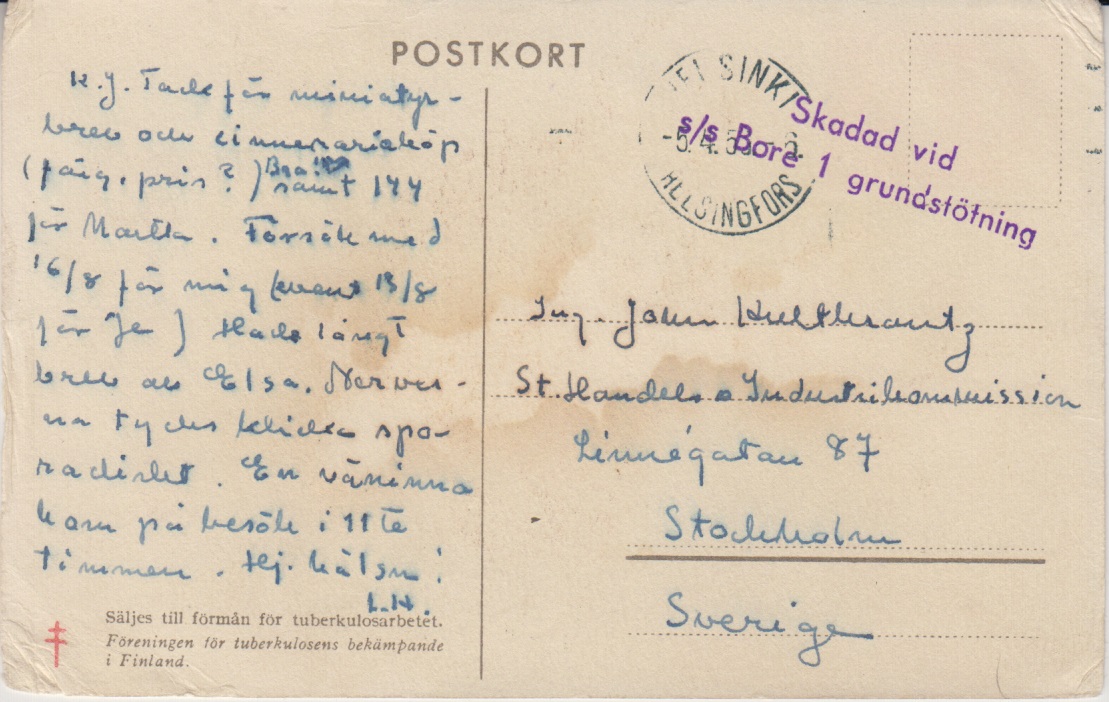 POSTKORT
K.J. Tack för miniatyr-
brev och cinnerariaköp
(färg, pris?) Bra! samt 144
för Martta. Försök med
16/8 för mig (event 13/8
för Je) Hade långt
brev av Elsa. Nerver-
na tycks klicka spo-
radiskt. En väninna
kom på besök i 11te
timmen. Hj. hälsn!
L.H.
Säljes till förmån för tuberkulosarbetet.
Föreningen för tuberkulosens bekämpande
i Finland.
HELSINKI
-5.4.5
HELSINGFORS
Skadad vid
s/s Bore 1 grundstötning
Ing. John Hultkrantz
St. Handels o Industrikommission
Linnégatan 87
Stockholm
Sverige